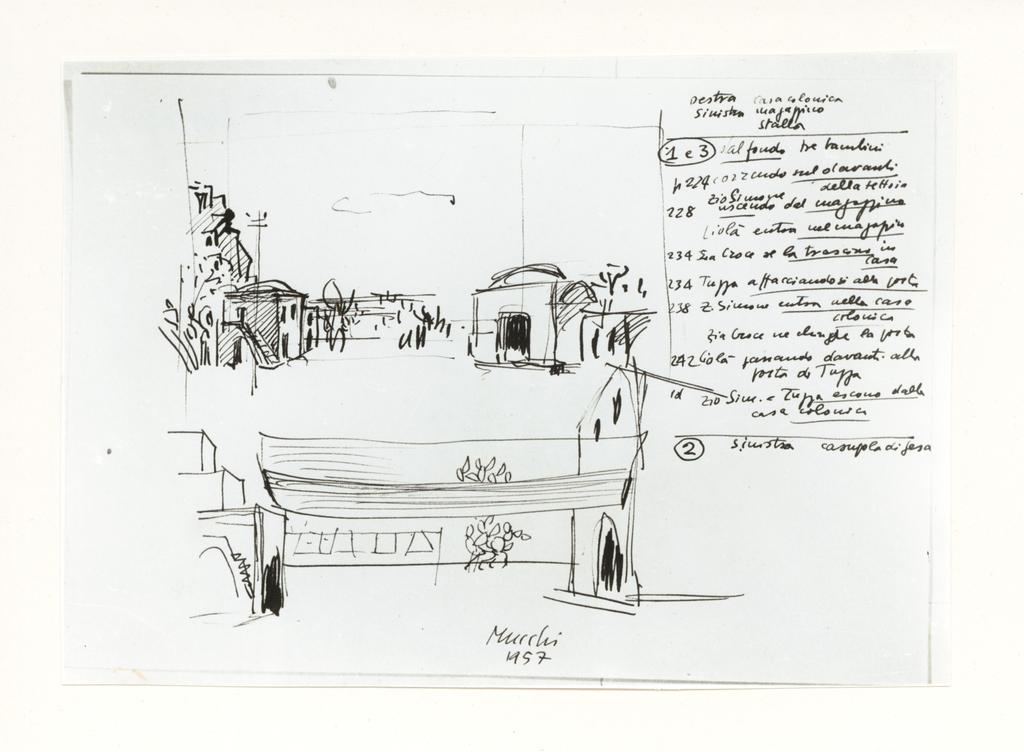 destra casa colonica
sinistra magazzino
stalla
1 e 3 dal fondo tre bambini
p 224 correndo sul davanti
della tettoia
zio Simone
228 uscendo dal magazzino
Liolà entra nel magazzin
234 Zia Croce se la trascina in
casa
234 Tuzza affacciandosi alla porta
238 Z. Simone entra nella casa
colonica
Zia Croce ne chiude la porta
242 Liolà passando davanti alla
porta di Tuzza
id zio Sim. e Tuzza escono dalla
casa colonica
2 sinistra casupola di Gesa
Mucchi
1957